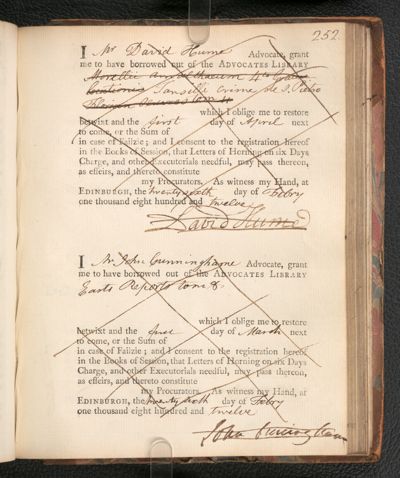 252
I Mr David Hume Advocate, grant
me to have borrowed out of the ADVOCATES LIBRARY
crime de
which I oblige me to restore
betwixt and the first day of April next
to come, or the Sum of
in case of Failzie; and I consent to the registration hereof
in the Books of Session, that Letters of Horning on six Days
Charge, and other Executorials needful, may pass thereon,
as effeirs, and thereto constitute
my Procurators. As witness my Hand, at
EDINBURGH, the twenty sixth day of Febry
one thousand eight hundred and twelve
David Hume
I Mr John Cunninghame Advocate, grant
me to have borrowed out of the ADVOCATES LIBRARY
Easts Reports tom 8.
which I oblige me to restore
betwixt and the first day of March next
to come, or the Sum of
in case of Failzie; and I consent to the registration hereof
in the Books of Session, that Letters of Horning on six Days
Charge, and other Executorials needful, may pass thereon,
as effeirs, and thereto constitute
my Procurators. As witness my Hand, at
EDINBURGH, the twenty sixth day of Febry
one thousand eight hundred and twelve
John Cuninghame